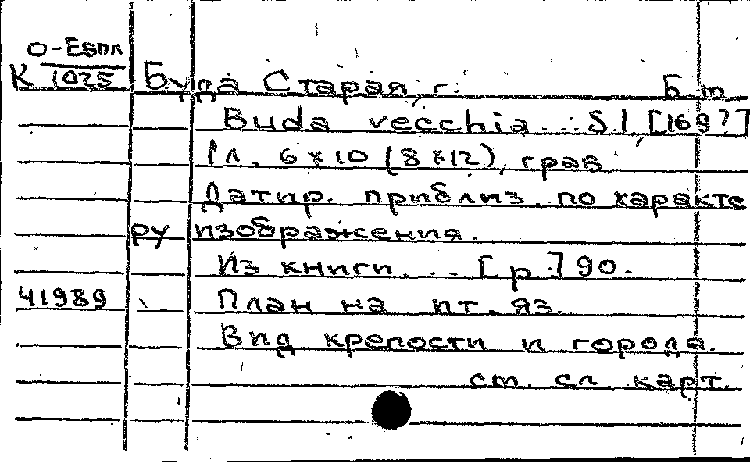 О-Евпл
К 1025 Буда Старая, г. Б.м.
Buda vecchia... S.l. [169?]
1 л. 6*10 (8*12), грав.
Датир. приблиз. по характе
ру изображения.
Из книги... [p.] 90.
41989 План на ит. яз.
Вид крепости и города.
см. сл. карт.